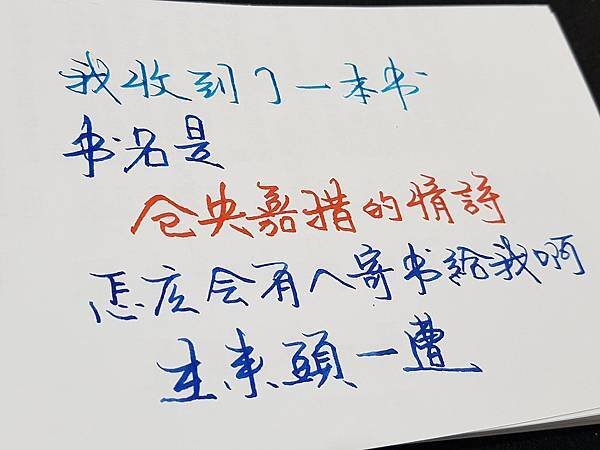 我收到了一本书
书名是
仓央嘉措的情詩
怎庅会有人寄书給我啊
生来頭一遭